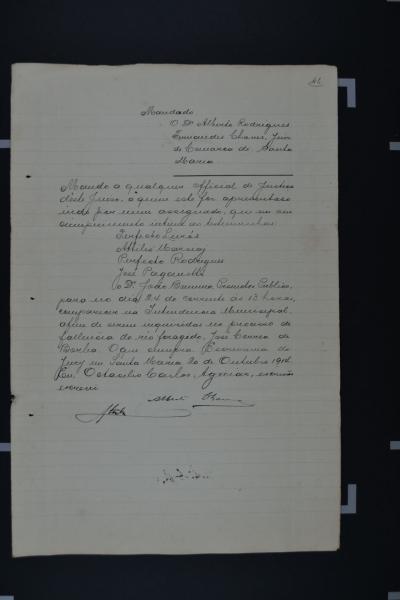 41.
Mandado
O Dr Alberto Rodrigues
Fernandes Chaves, Juiz
de Comarca de Santa
Maria
Mando a qualquer official de Justiça
deste Juizo, a quem este for apresentado
indo por mim assignado, que em seu
cumprimento intime as testemunhas:
Perfecto Lucás
Attilio
Perfecto Rodrigues
José Paganelli
o Dr. João Promotor Publico,
para no dia 24 do corrente ás 13 horas,
comparecer na Intendencia Municipal,
afim de serem inquiridas no processo de
fallencia do réo foragido, José Correa de
Borba. O que cumpra.
Jury em Santa Maria 20 de Outubro 1914.
Eu, Octacilio Carlos escrivão
escrevi
Alberto Chaves